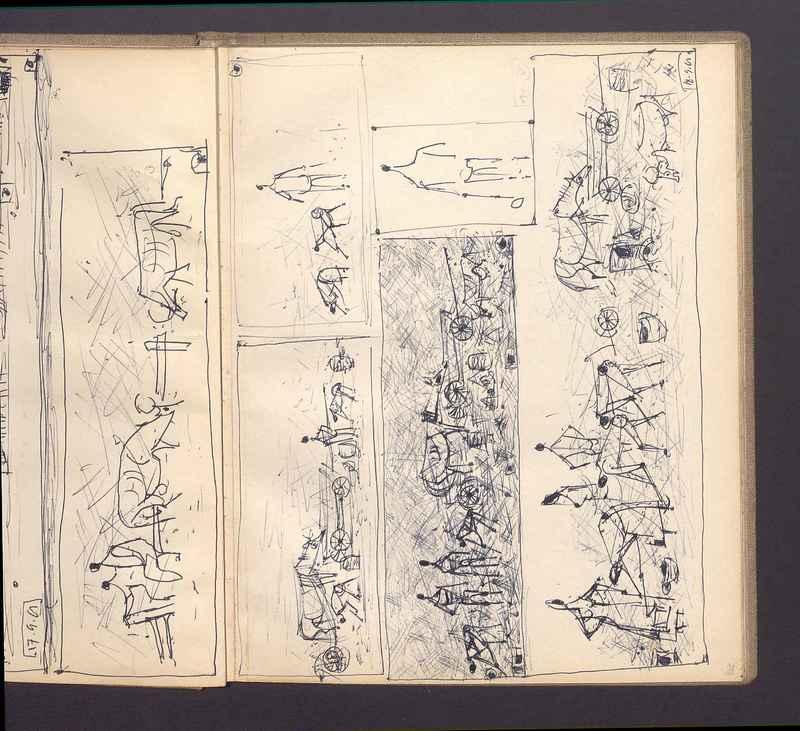 17.9.61
18.9.61